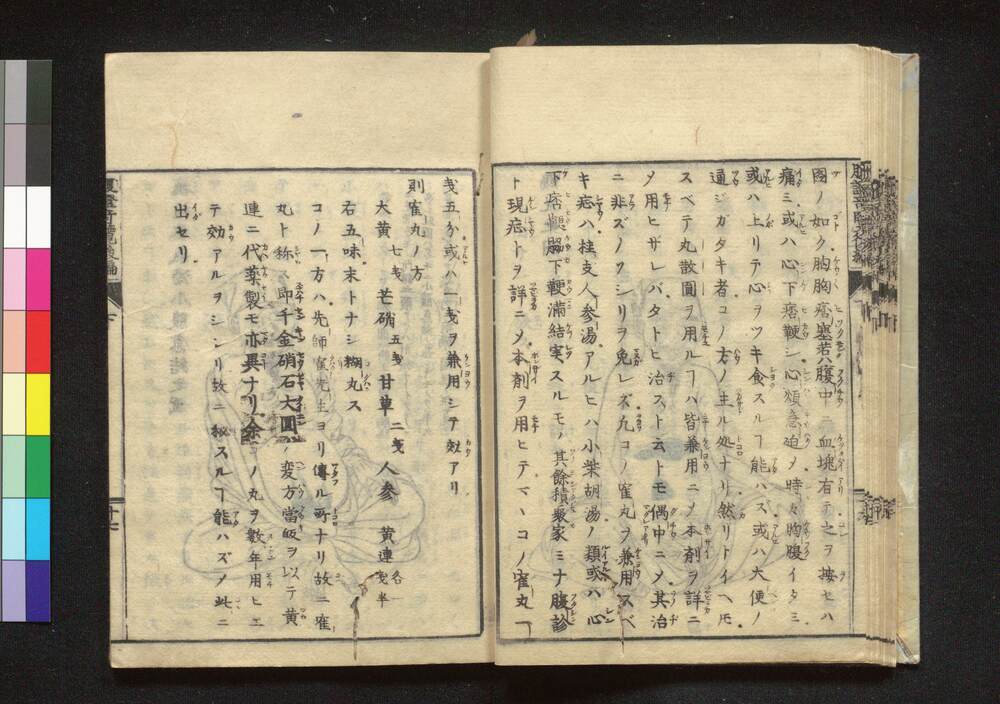 圖ノ如ク胸脇痞塞若ハ腹中ニ血塊有テ之ヲ按セハ
痛ミ或ハ心下痞鞕シ心煩急迫メ時々胸腹イタミ
或ハ上リテ心ヲツキ食スルヿ能ハズ或ハ大便ノ
通ジカタキ者コノ方ノ主ル処ナリ然リトイヘ𪜈
スベテ丸散圓ヲ用ルヿハ皆兼用ニメ本剤ヲ詳ニ
メ用ヒザレバタトヒ治スト云トモ偶中ニメ其治
ニ非ズノソシリヲ免レズ凢コノ丸ヲ兼用スベ
キ症ハ桂支人参湯アルヒハ小柴胡湯ノ類或ハ心
下痞鞕脇下鞕満結実スルモノ其餘積聚家ミナ腹診
ト現症トヲ詳ニメ本剤ヲ用ヒテマヽコノ丸ヿ
戔五分或ハ一戔ヲ兼用シテ効アリ
則丸ノ方
大黄 七戔 芒硝 五戔 甘草 二戔 人参 黄連 各一戔半
右五味末トナシ糊丸ス
コノ一方ハ先師先生ヨリ傳ル所ナリ故ニ
丸ト称ス即千金硝石大圓ノ変方當皈ヲ以テ黄
連ニ代薬製モ亦異ナリ余コノ丸ヲ数年用ヒエ
テ効アルヲシリ故ニ秘スルヿ能ハズメ此ニ
出セリ